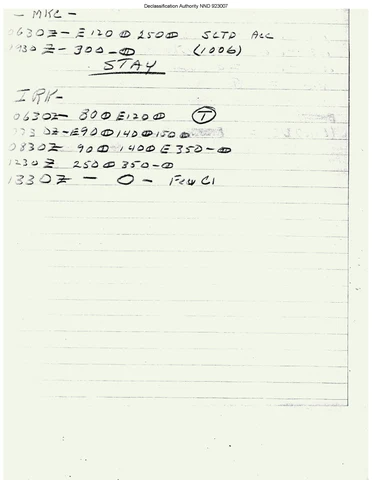 Declassification Authority NND 923007
- MKC -
0630Z - E120⦶250⦶ SCTD ACC
1930Z - 300-⦶ (1006)
STAY
IRK -
0630Z - 80⦶E120⦶ Ⓣ
0730Z - E90⦶140⦶150⦶
0830Z 90⦶140⦶E350-⦶
1230Z 250⦶350-⦶
1330Z - O - Few Ci